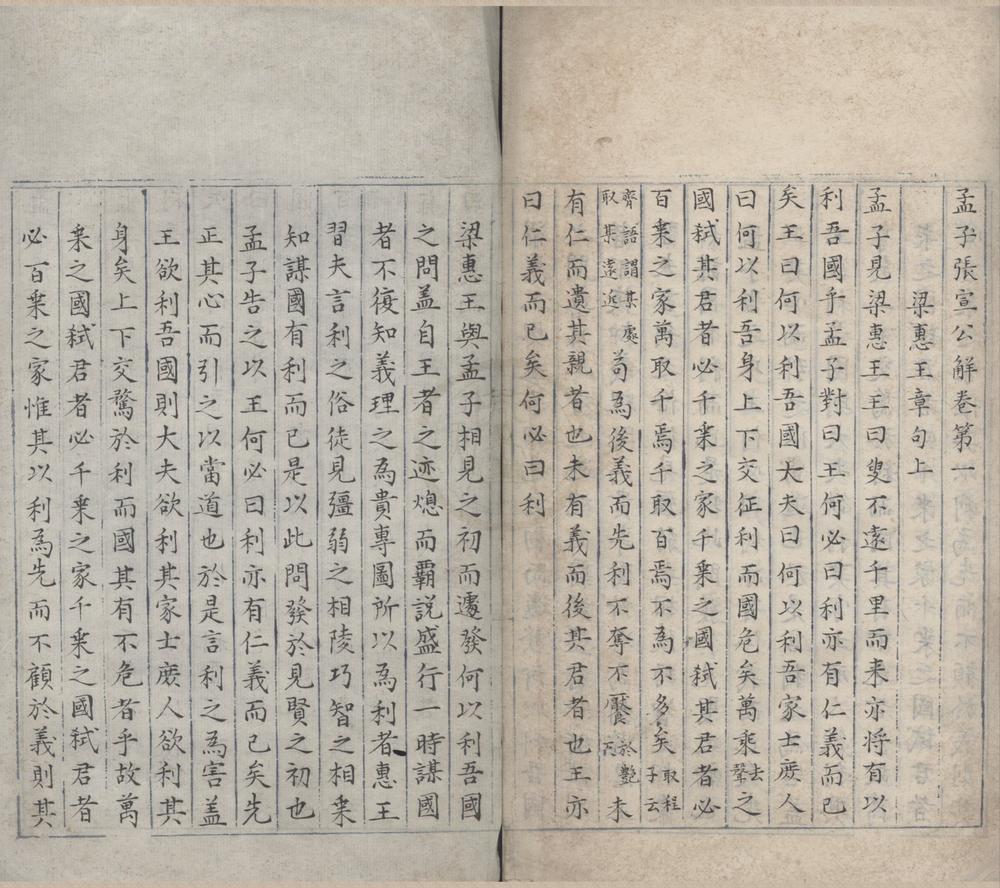 孟子張宣公解卷第一
梁惠王章句上
孟子見梁惠王王曰叟不遠千里而来亦将有以
利吾國乎孟子對曰王何必曰利亦有仁義而已
矣王曰何以利吾國大夫曰何以利吾家士庶人
曰何以利吾身上下交征利而國危矣萬乘去聲之
國弑其君者必千乗之家千乗之國弑其君者必
百乗之家萬取千焉千取百焉不為不多矣取程子云
齊語謂某處取某遠近苟為後義而先利不奪不饜於艶反未
有仁而遺其親者也未有義而後其君者也王亦
曰仁義而已矣何必曰利
梁惠王與孟子相見之初而遽發何以利吾國
之問盖自王者之迹熄而霸説盛行一時謀國
者不復知義理之為貴專圖所以為利者惠王
習夫言利之俗徒見彊弱之相陵巧智之相乗
知謀國有利而已是以此問發於見賢之初也
孟子告之以王何必曰利亦有仁義而已矣先
正其心而引之以當道也於是言利之為害盖
王欲利吾國則大夫欲利其家士庶人欲利其
身矣上下交騖於利而國其有不危者乎故萬
乗之國弑君者必千乗之家千乗之國弑君者
必百乗之家惟其以利為先而不顧於義則其